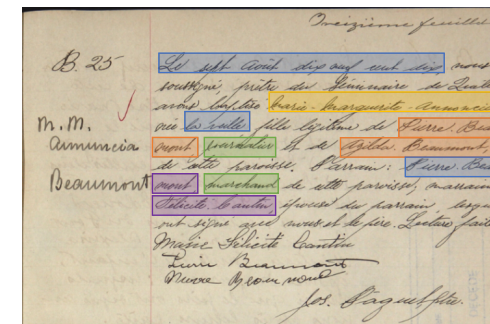 Treizième feuillet
B. 25
Le sept Août dix neuf cent dix, nous
soussigné, prêtre du Séminaire de
avons baptisé Marie-Marguerite-Annuncia
née la veille fille légitime de Pierre Beau
mont, marchand et de Beaumont,
M. M.
Annuncia
Beaumont
de cette paroisse. Parrain: Pierre Beau
mont marchand de cette paroisse, marraine
Félicité Cantin épouse du parrain,
ont signé avec nous et le père. Lecture faite
Marie Félicité Cantin
Pierre Beaumont
Beaumont
Jos. Paquet ptre.